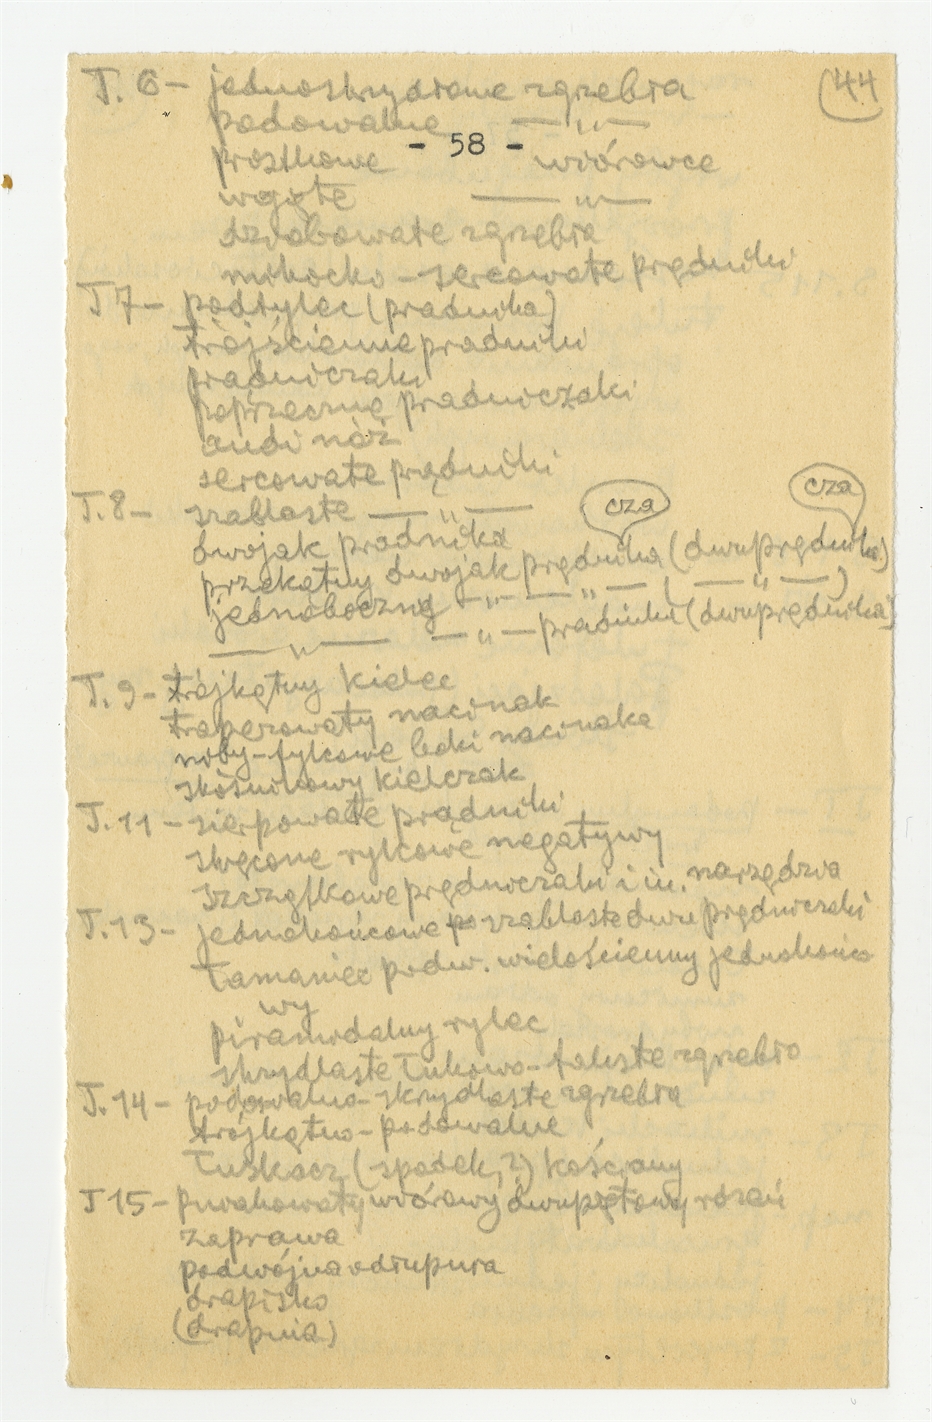 T. 6 - jednoskrzydłowe zgrzebła (44
podowalne — " —
- 58 -
prostkowe wiórowce
wgięte — " —
dziobowate zgrzebła
mihocko - sercowate prądniki
T 7 - podtylec (prądnika)
trójścienne prądniki
prądniczaki
poprzeczne prądniczaki
audi nóż
sercowate prądniki
T. 8 - szablaste — " — cza cza
dwojak prądnika
przekątny dwojak prądnika (dwuprądnika)
jednoboczny - " - — " — ( — " — )
— " — — " — prądnika (dwuprądnika)
T. 9 - trójkątny kielec
traperowaty nacinak
niby-rylcowe boki nacinaka
skośnikowy kielczak
T. 11 - sierpowate prądniki
skręcone rylcowe negatywy
szczątkowe prądniczaki i in. narzędzia
T. 13 - jednokońcowe szablaste dwu prądniczaki
łamaniec podw. wielościenny jednokońco
wy
piramidalny rylec
skrzydlaste łukowo-faliste zgrzebło
T. 14 - podowalno-skrzydlaste zgrzebła
trójkątno-podowalne
Łuskacz (-spodek, ?) kościany
T 15 - wiórowy rdzeń
zaprawa
podwójna odłupnia
drapisko
(drapnia)